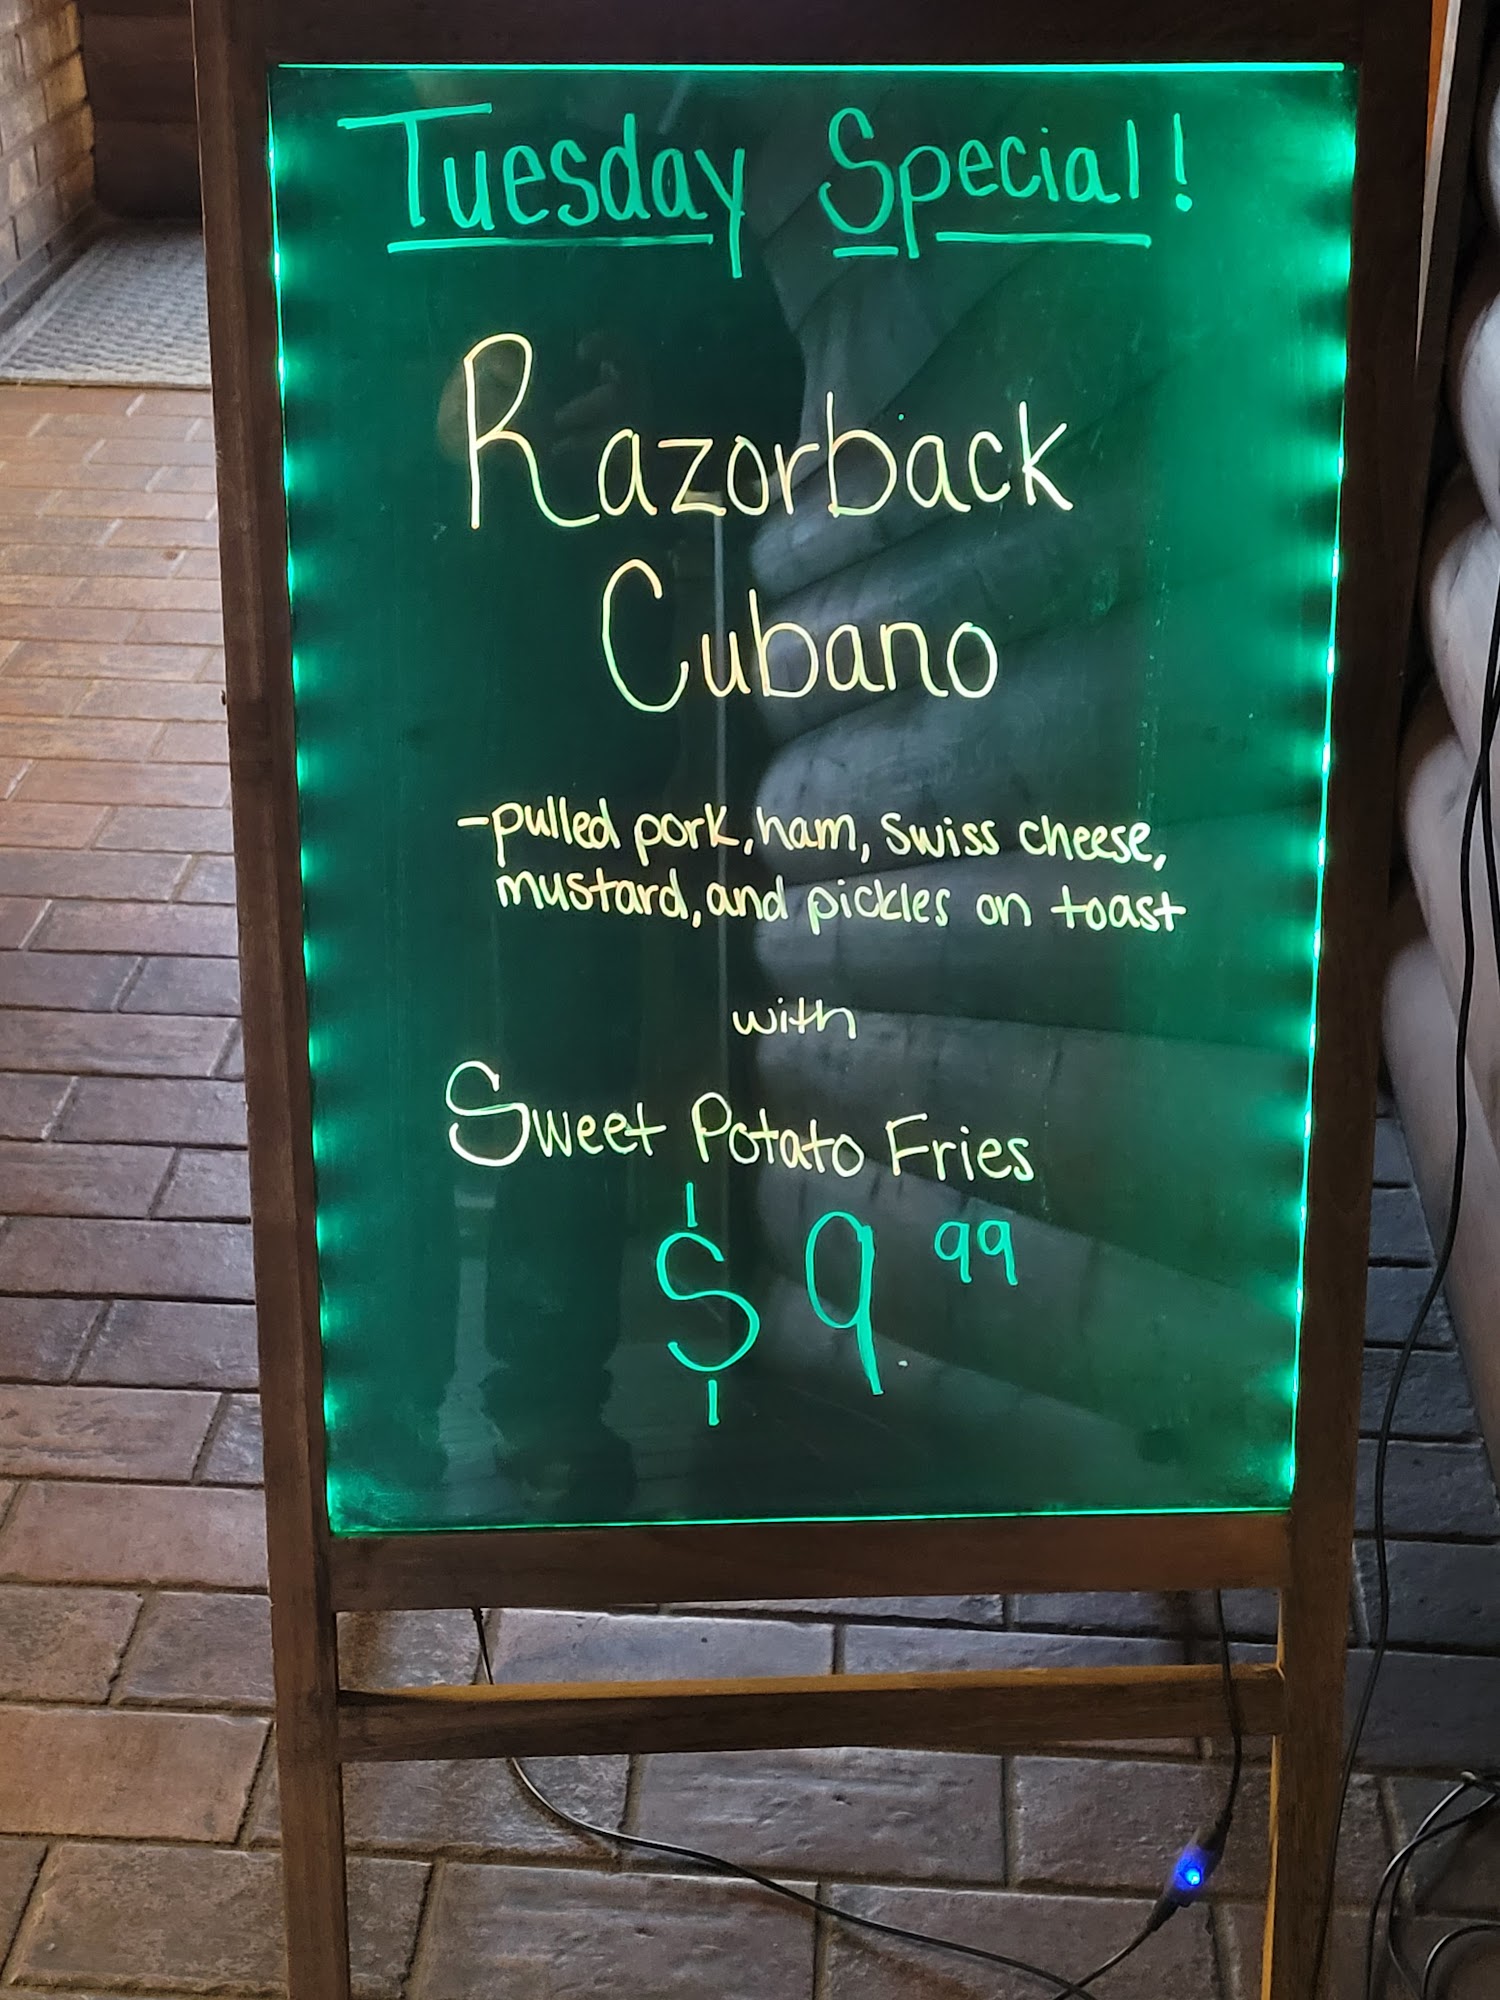 Tuesday Special!
Razorback
Cubano
-pulled pork, ham, swiss cheese,
mustard, and pickles on toast
with
Sweet Potato Fries
$9.99